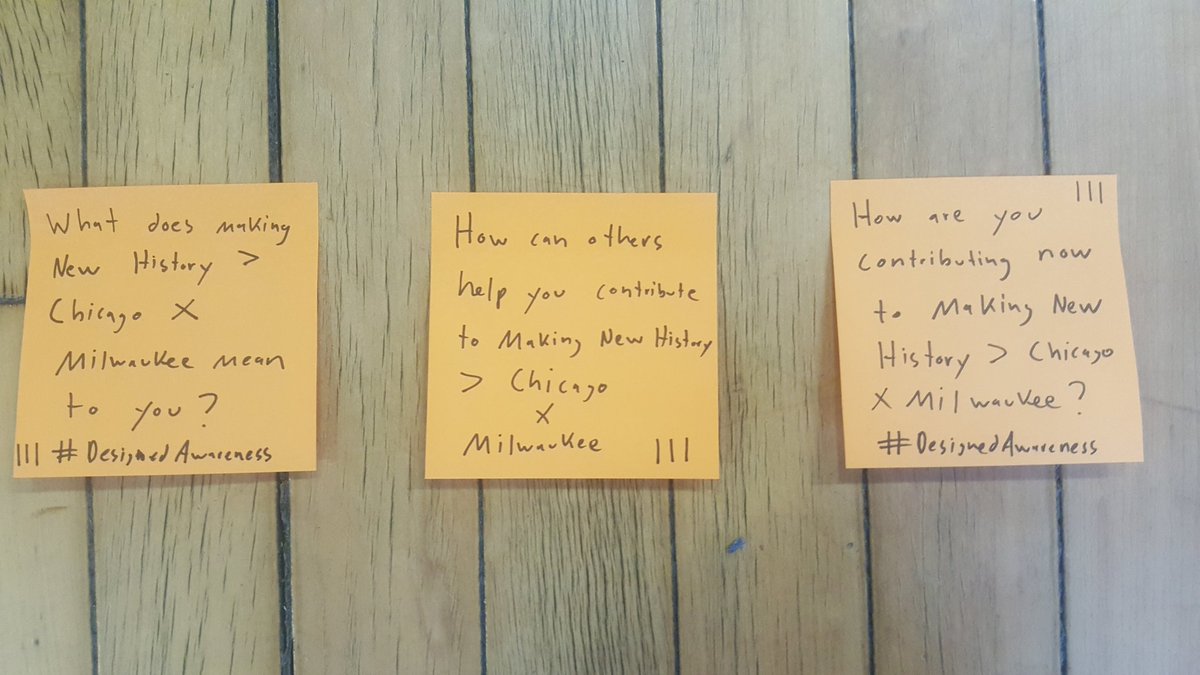 What does making
New History >
Chicago X
Milwaukee mean
to you?
||| #DesignedAwareness
How can others
help you contribute
to Making New History
> Chicago
X
Milwaukee |||
|||
How are you
contributing now
to Making New
History > Chicago
X Milwaukee?
#DesignedAwareness